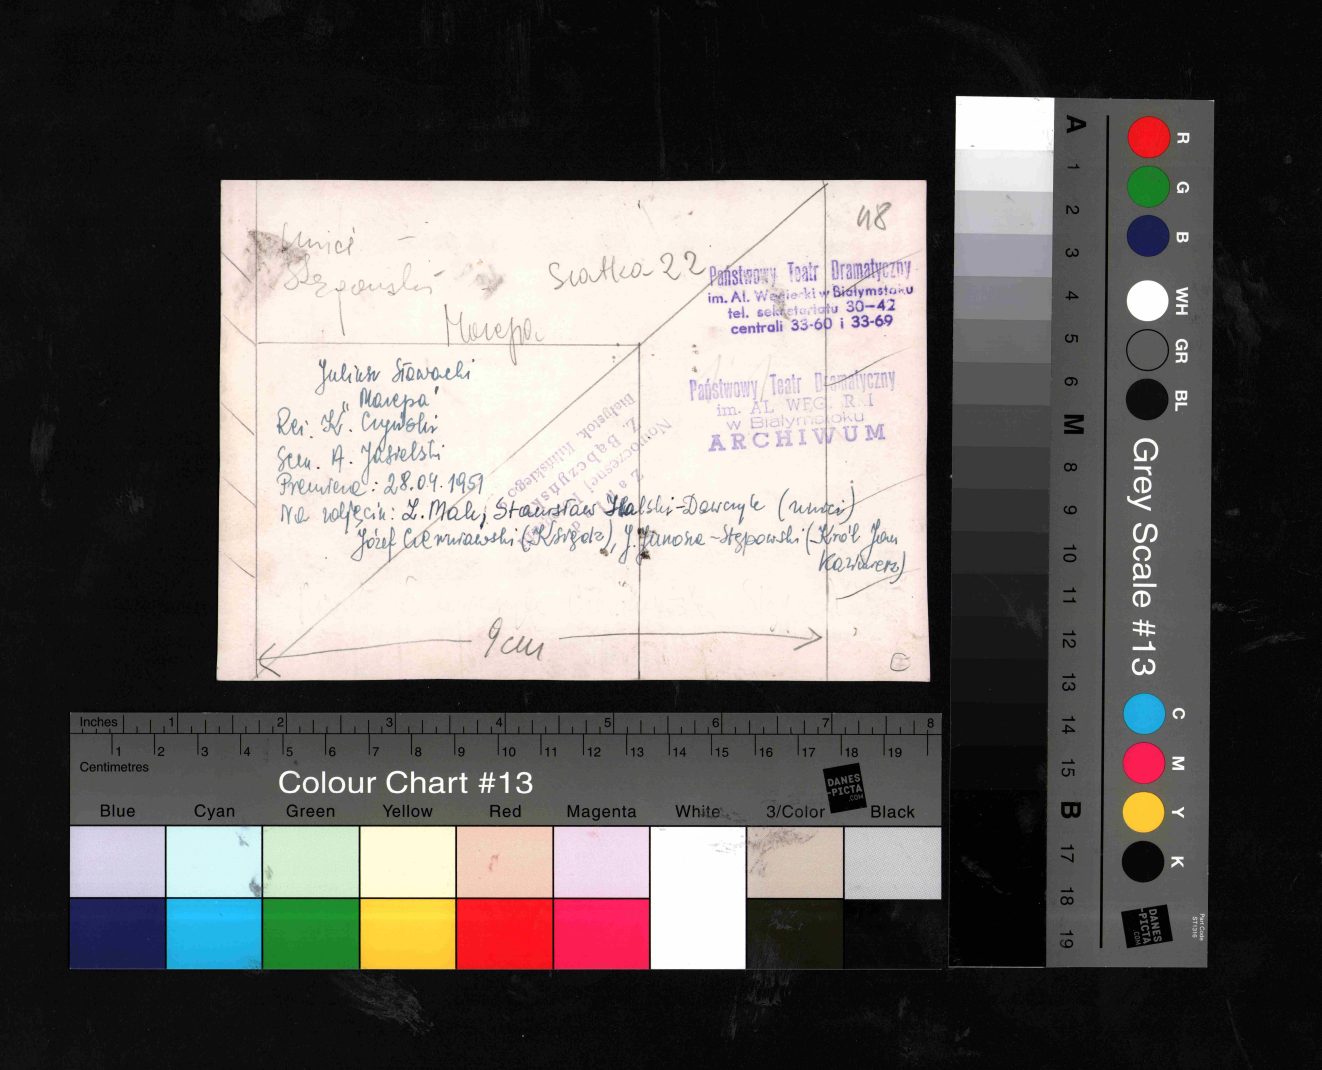 48
Mnisi –
Stępowski
Siatka 22
Mazepa
Państwowy Teatr Dramatyczny
im. Al. Węgierki w Białymstoku
tel. sekretariatu 30-42
centrali 33-60 i 33-69
Państwowy Teatr Dramatyczny
im. AL WĘG R I
w Białymstoku
ARCHIWUM
Juliusz Słowacki
"Mazepa"
Reż. K. Czyński
Scen. A. Jasielski
Premiera: 28.04.1951
Na zdjęciu: L. Mak, Stanisław Halski-Dawczyk (mnisi)
Józef Czerniawski (Ksiądz), J. Janosza-Stępowski (Król Jan
Kazimierz)
Nowoczesnej
Z. Bąbczyński
Białystok, Kilińskiego
9 cm
E
Inches 1 2 3 4 5 6 7 8
1 2 3 4 5 6 7 8 9 10 11 12 13 14 15 16 17 18 19
Centimetres
Colour Chart #13
DANES
-PICTA
.COM
Blue Cyan Green Yellow Red Magenta White 3/Color Black
A 1 2 3 4 5 6 M 8 9 10 11 12 13 14 15 B 17 18 19
R G B WH GR BL
Grey Scale #13
C M Y K
DANES
-PICTA
.COM
Part Code
ST1316